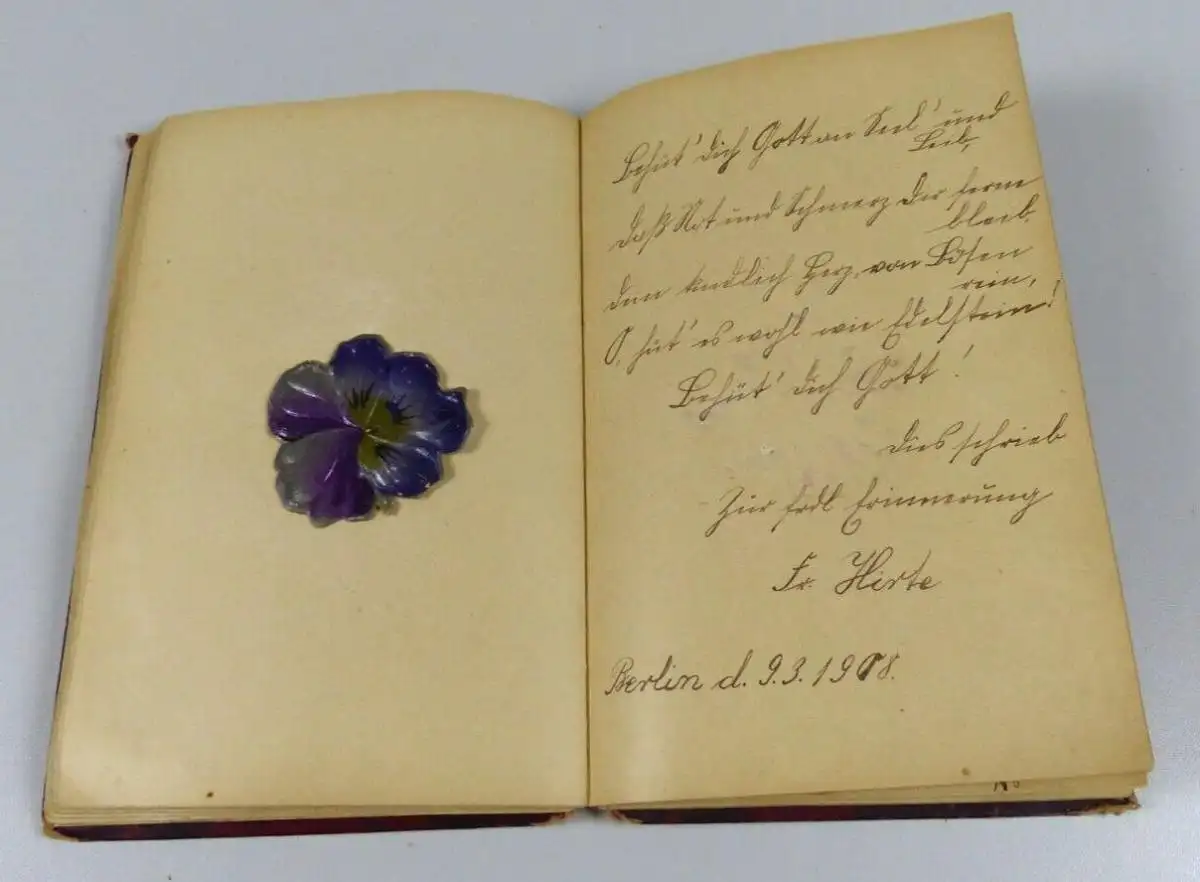 Behüt' dich Gott an Seel' und
Leib,
daß Not und Schmerz dir ferne
bleib.
dein kindlich Herz, von Bösen
rein,
O, hüt' es wohl wie Edelstein!
Behüt' dich Gott!
Dies schrieb
Zur frdl Erinnerung
Fr. Hirte
Berlin d. 9.3.1908.